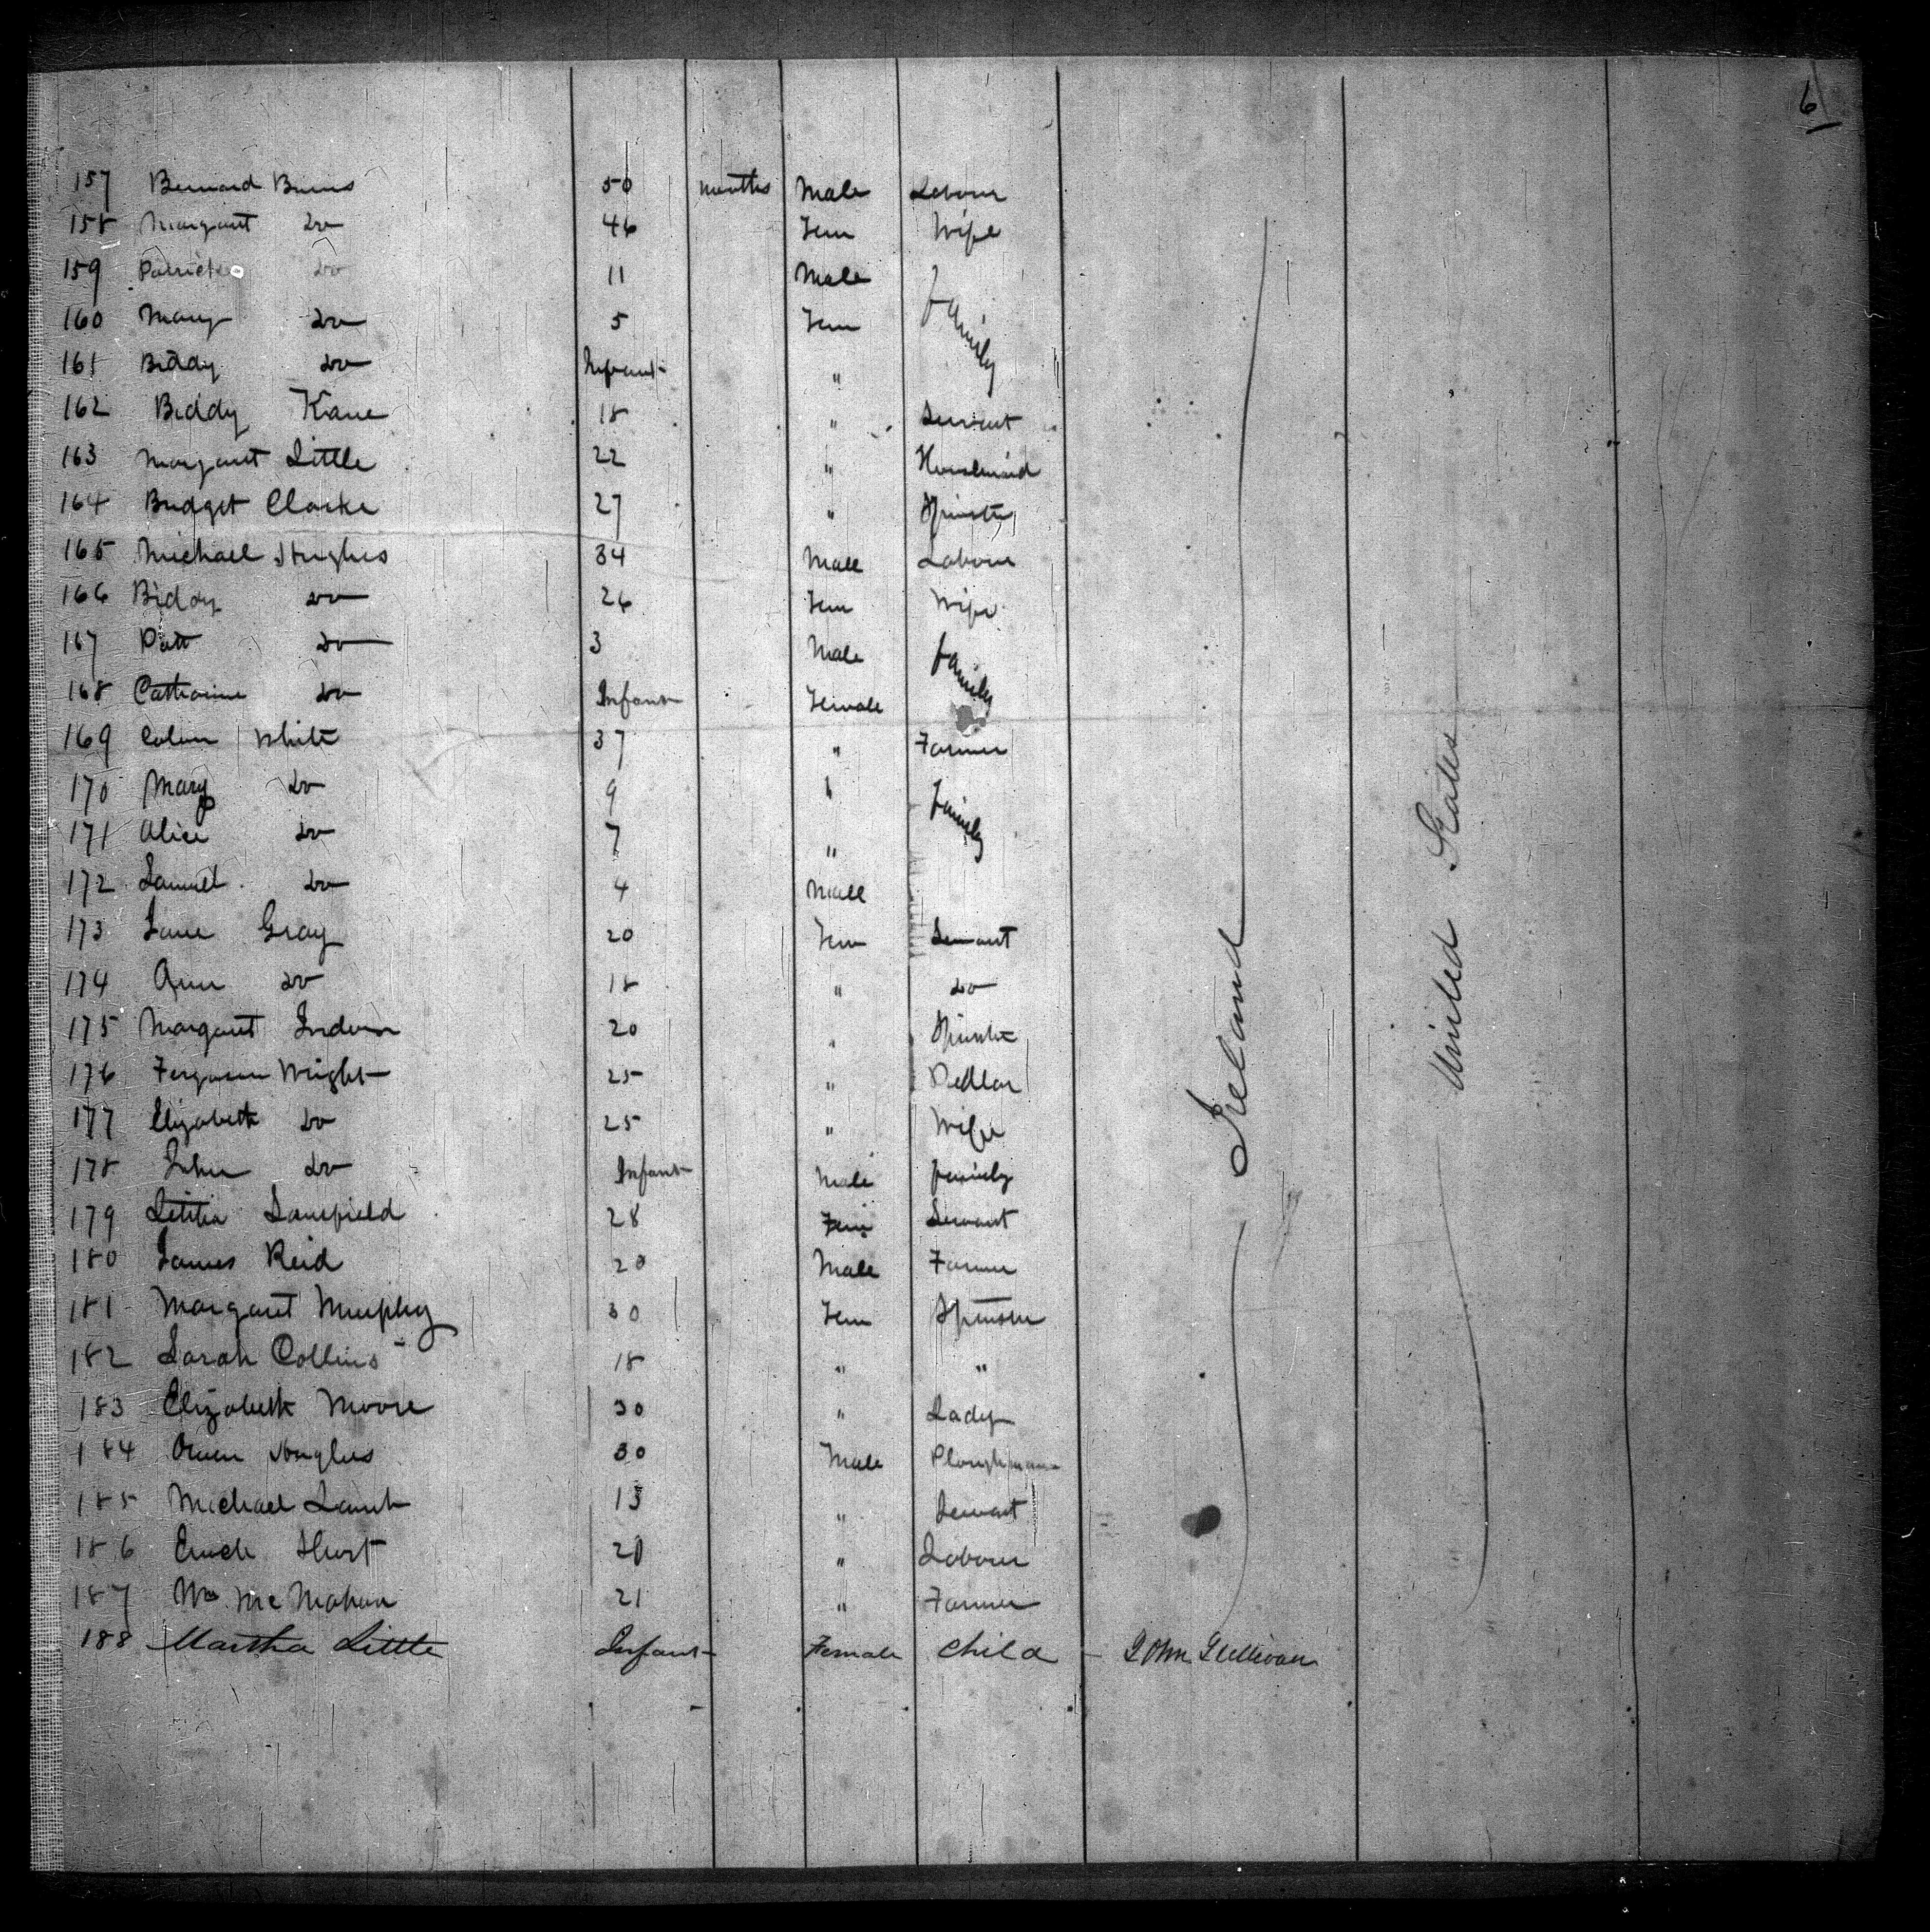 6
157 Bernard Burns 50 months Male Labour
158 Margaret Do 46 Fem Wife
159 Patrick Do 11 Male
160 Mary Do 5 Fem Family
161 Biddy Do Infant "
162 Biddy Kane 18 " Servant
163 Margaret Little 22 " Housemaid
164 Bridget Clarke 27 " Spinster
165 Michael Hughes 34 Male Labour
166 Biddy Do 26 Fem Wife
167 Patt Do 3 Male Family
168 Catharine Do Infant Female
169 White 37 " Farmer
170 Mary Do 9 " Family
171 Alice Do 7 "
172 Samuel Do 4 Male
173 Jane Gray 20 Fem Servant
174 Ann Do 18 " Do
175 Margaret 20 " Spinster
176 Ferguson Wright 25 " Pedlar
177 Elizabeth Do 25 " Wife
178 John Do Infant Male family
179 Letitia 28 Fem Servant
180 James Reid 20 Male Farmer
181 Margaret Murphy 30 Fem Spinster
182 Sarah Collins 18 " "
183 Elizabeth Moore 30 " Lady
184 Owen Hughes 30 Male Ploughman
185 Michael Lamb 13 " Servant
186 Short 20 " Labour
187 Wm McMahon 21 " Farmer
188 Martha Little Infant Female Child John Sullivan
Ireland
United States